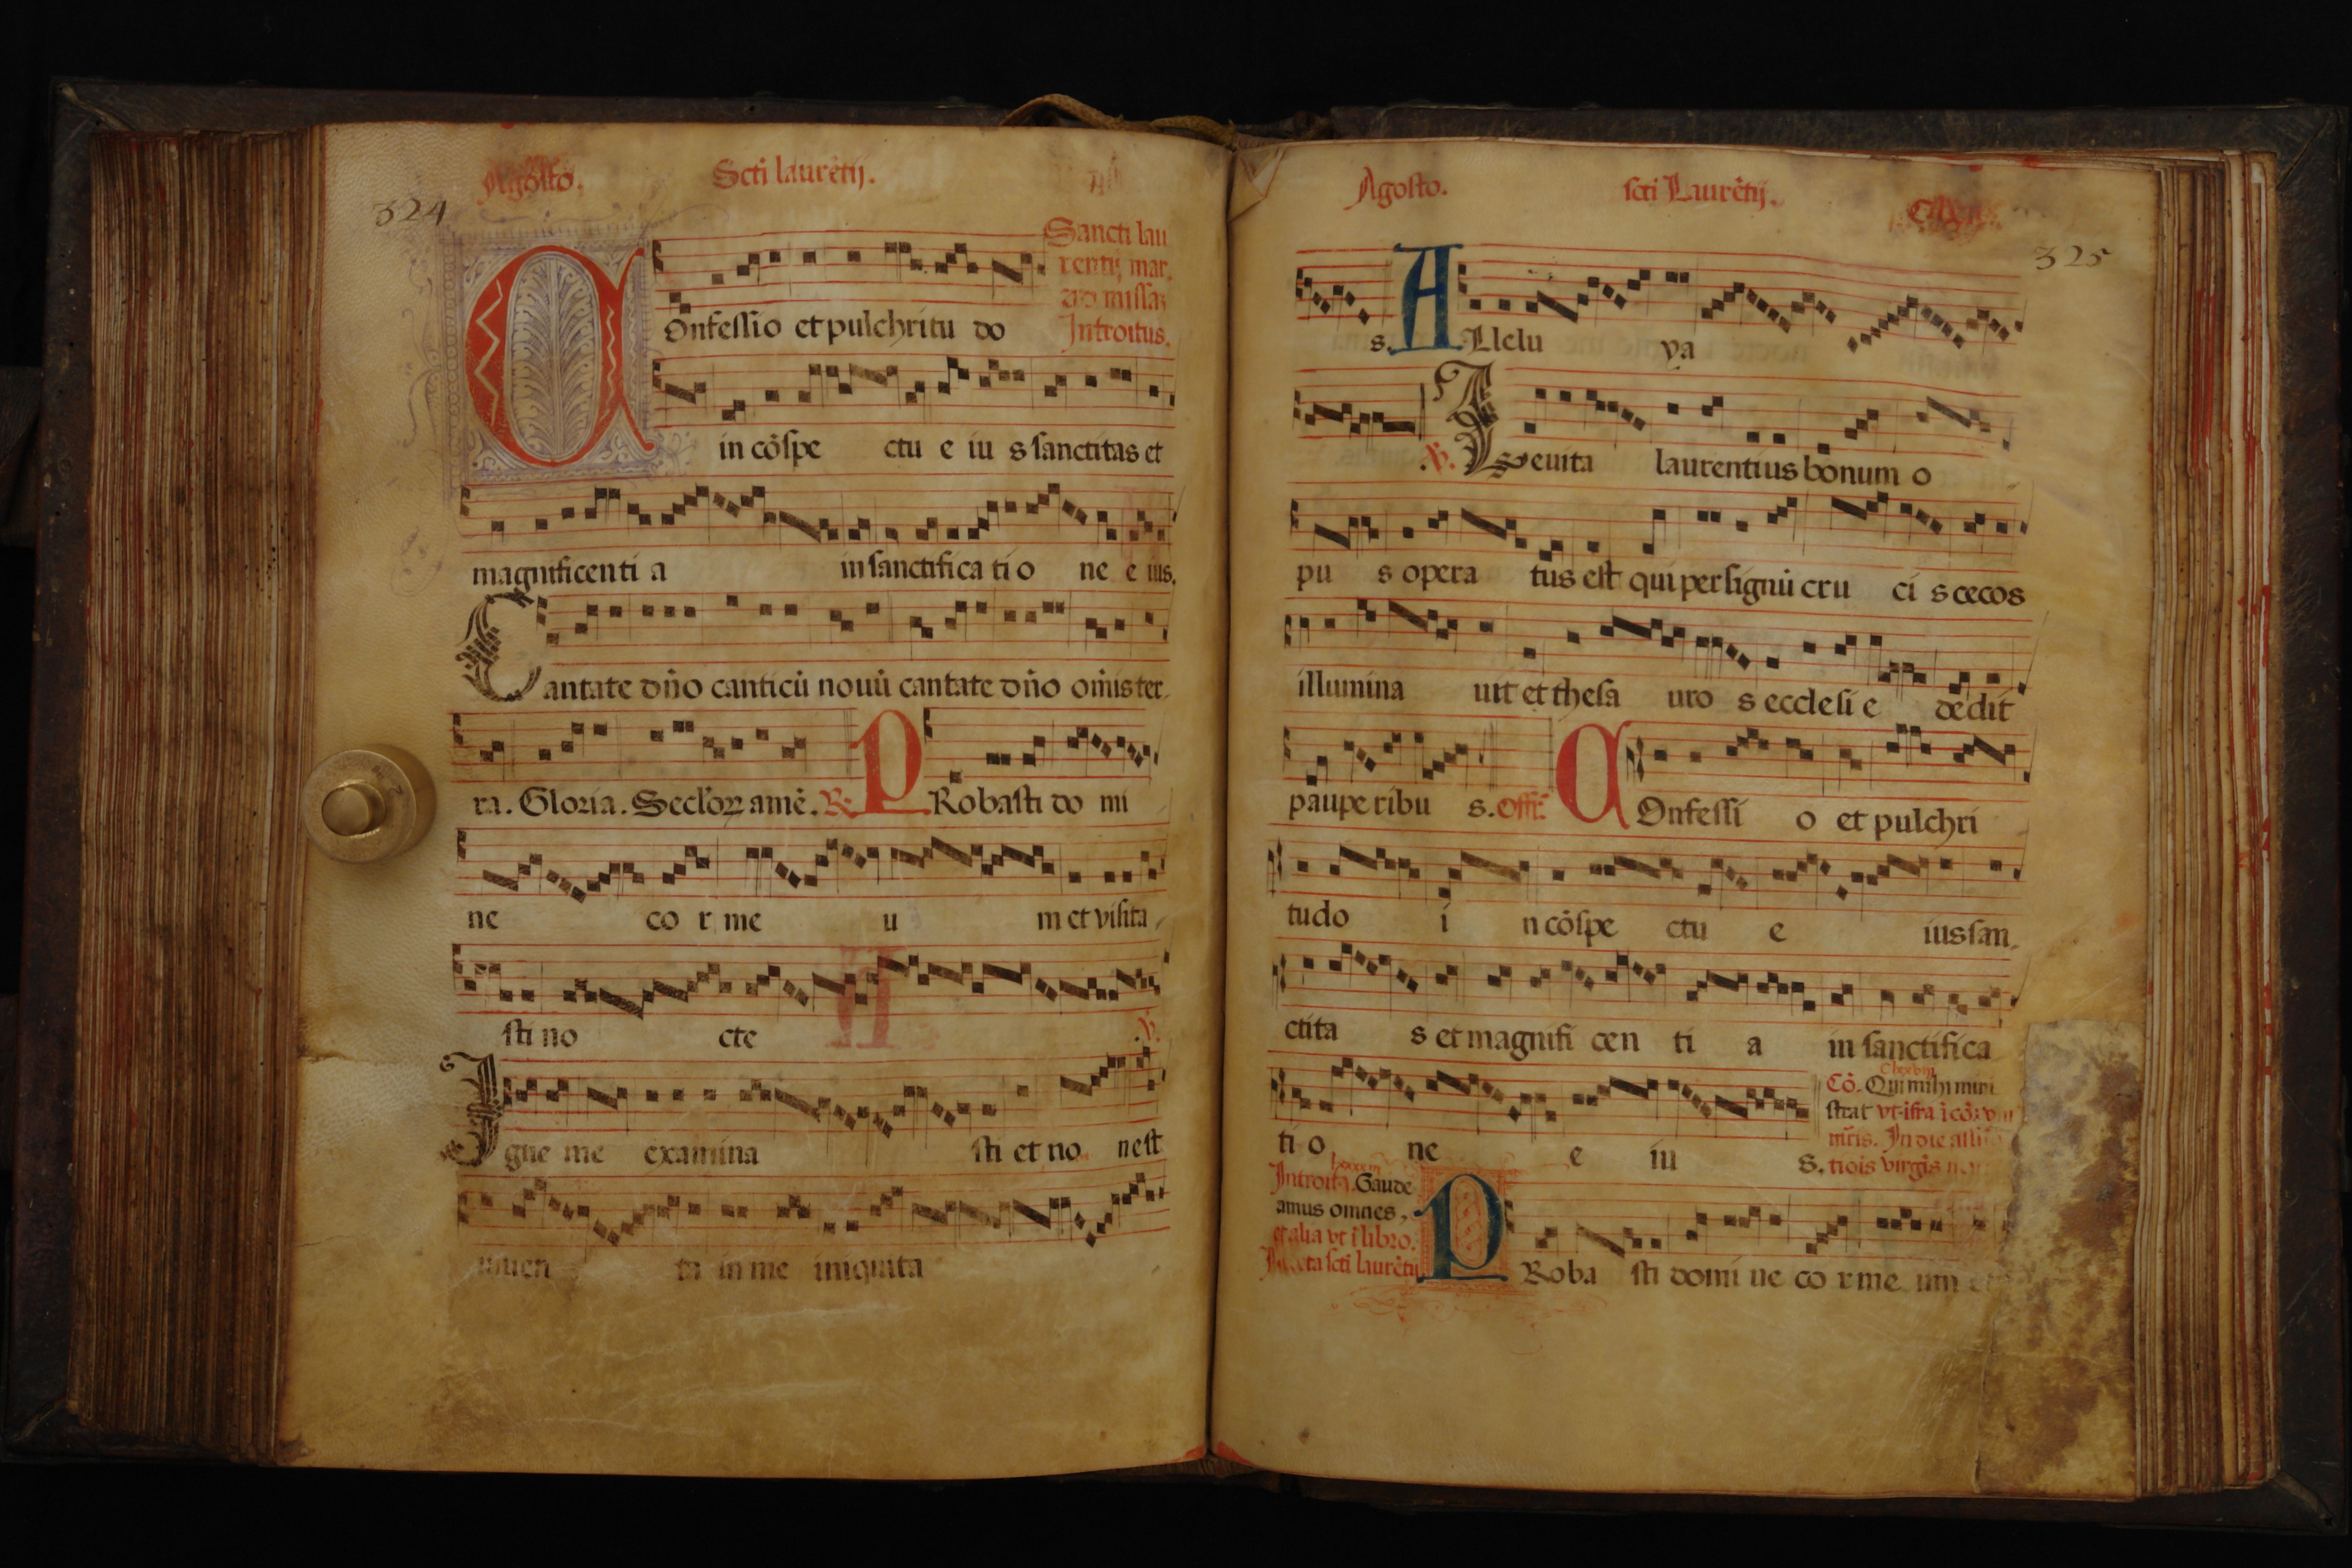 Agosto. Scti laurētij.
324
Sancti lau
rentij mar.
ad missaz
Introitus.
COnfessio et pulchritu do
in cōspe ctu e iu s sanctitas et
magnificenti a in sanctifica ti o ne e ius.
Cantate dño canticū nouū cantate dño oīnis ter
ra. Gloria. Seclorꝝ amē. R. PRobasti do mi
ne co r me u m et visita
sti no cte V.
Igne me examina sti et no nest
inuen ta in me iniquita
Agosto. scti Laurētij.
325
s. ALlelu ya
V. Leuita laurentius bonum o
pu s opera tus est qui per signū cru ci s cecos
illumina uit et thesa uro s ecclesi e dedit
paupe ribu s. Offr. COnfessi o et pulchri
tudo i n cōspe ctu e ius san
ctita s et magnifi cen ti a in sanctifica
ti o ne e iu s.
Cō. Qui mihi mini
strat vt. ifra ī cōi vni
mr̄is. In die
tiois virgīs
Introitꝰ. Gaude
amus omnes,
et alia vt ī libro.
scti laurētij
PRoba sti domi ne co r me um